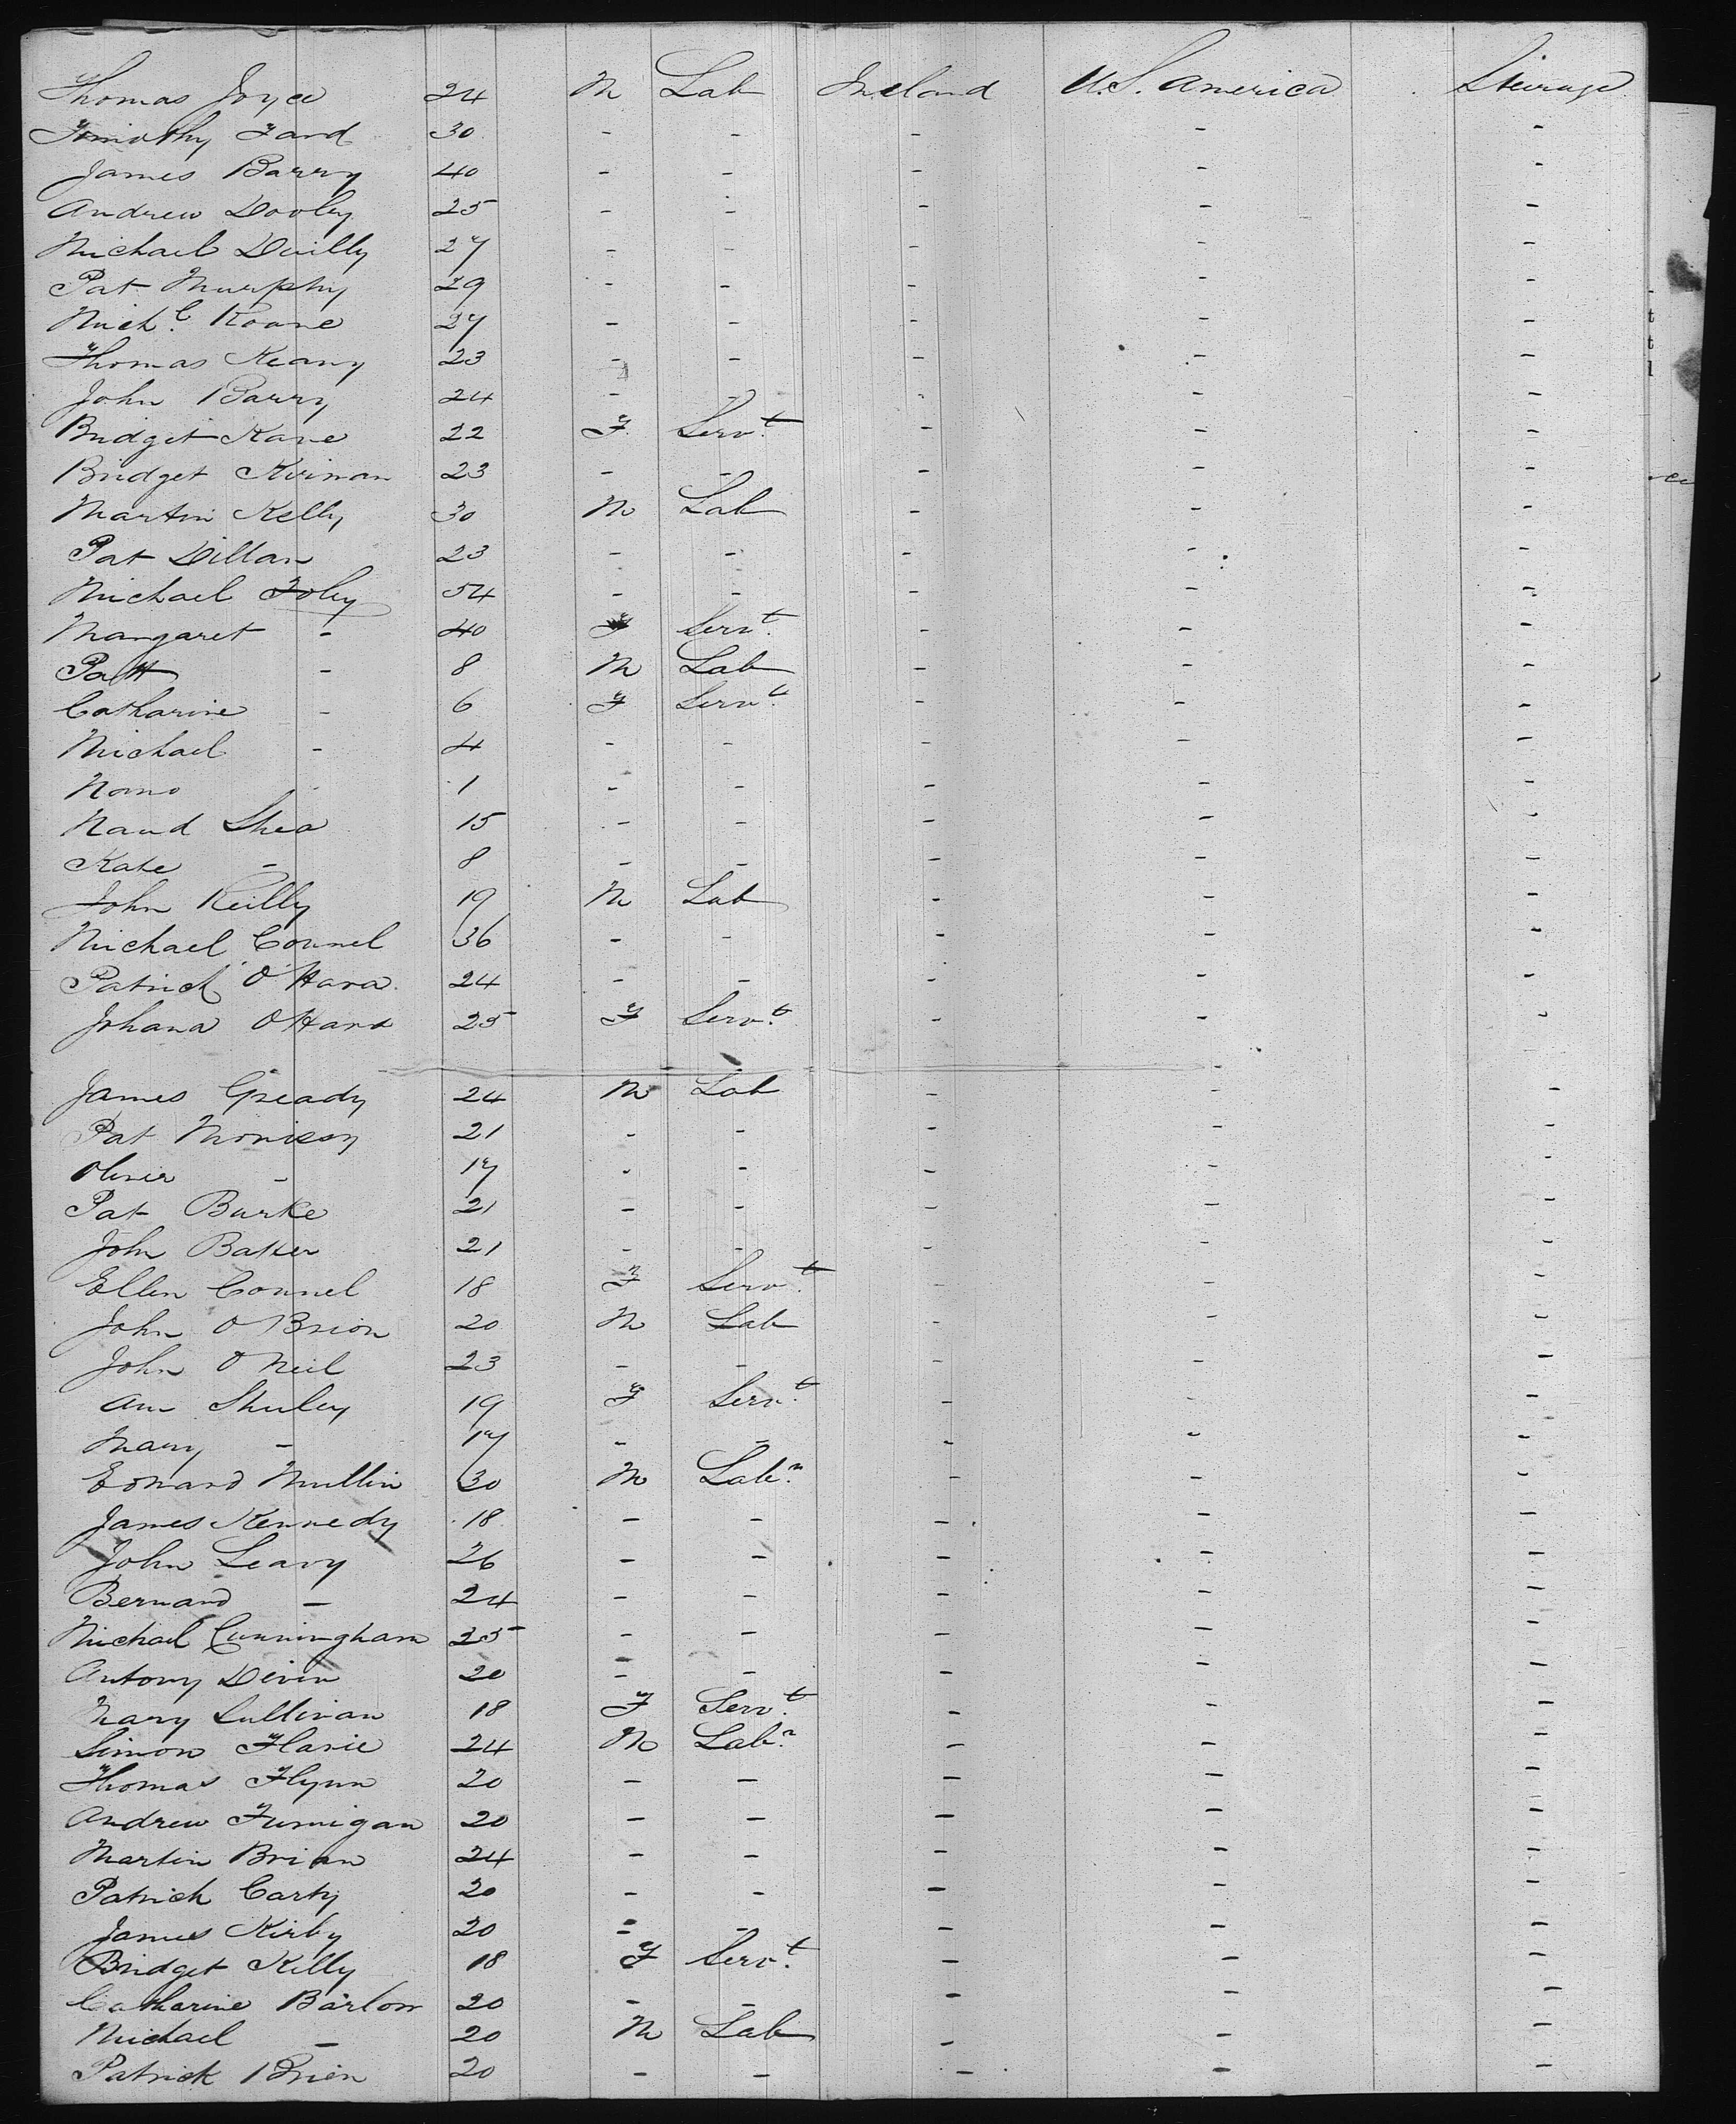 Thomas Joyce 24 M Lab Ireland U.S. America Steerage
Timothy Fard 30 - - - - -
James Barry 40 - - - - -
Andrew Dooley 25 - - - - -
Michael Duilly 27 - - - - -
Pat Murphy 29 - - - - -
Mich.l Roane 27 - - - - -
Thomas Keany 23 - - - - -
John Barry 24 - - - - -
Bridget Kane 22 F Serv.t - - -
Bridget Kirinan 23 - - - - -
Martin Kelly 30 M Lab - - -
Pat Dillan 23 - - - - -
Michael Foley 54 - - - - -
Margaret - 40 F Serv.t - - -
Patt - 8 M Lab - - -
Catharine - 6 F Serv.t - - -
Michael - 4 - - - - -
Nano - 1 - - - - -
Naud Shea 15 - - - - -
Kate - 8 - - - - -
John Reilly 19 M Lab - - -
Michael Connel 36 - - - - -
Patrick O'Hara 24 - - - - -
Johana OHara 25 F Serv.t - - -
James Gready 24 M Lab - - -
Pat Morissy 21 - - - - -
Oliver - 17 - - - - -
Pat Burke 21 - - - - -
John Baker 21 - - - - -
Ellen Connel 18 F Serv.t - - -
John O Brion 20 M Lab - - -
John O Neil 23 - - - - -
Ann Shuley 19 F Serv.t - - -
Mary - 17 - - - - -
Edward Mullin 30 M Lab.r - - -
James Kennedy 18 - - - - -
John Leavy 26 - - - - -
Bernard - 24 - - - - -
Michael Cunningham 25 - - - - -
Antony Divin 20 - - - - -
Mary Sullivan 18 F Serv.t - - -
Simon Flavie 24 M Lab.r - - -
Thomas Flynn 20 - - - - -
Andrew Funnigan 20 - - - - -
Martin Brian 24 - - - - -
Patrick Carty 20 - - - - -
James Kirby 20 - - - - -
Bridget Killy 18 F Serv.t - - -
Catharine Barlow 20 - - - - -
Michael - 20 M Lab - - -
Patrick Brien 20 - - - - -